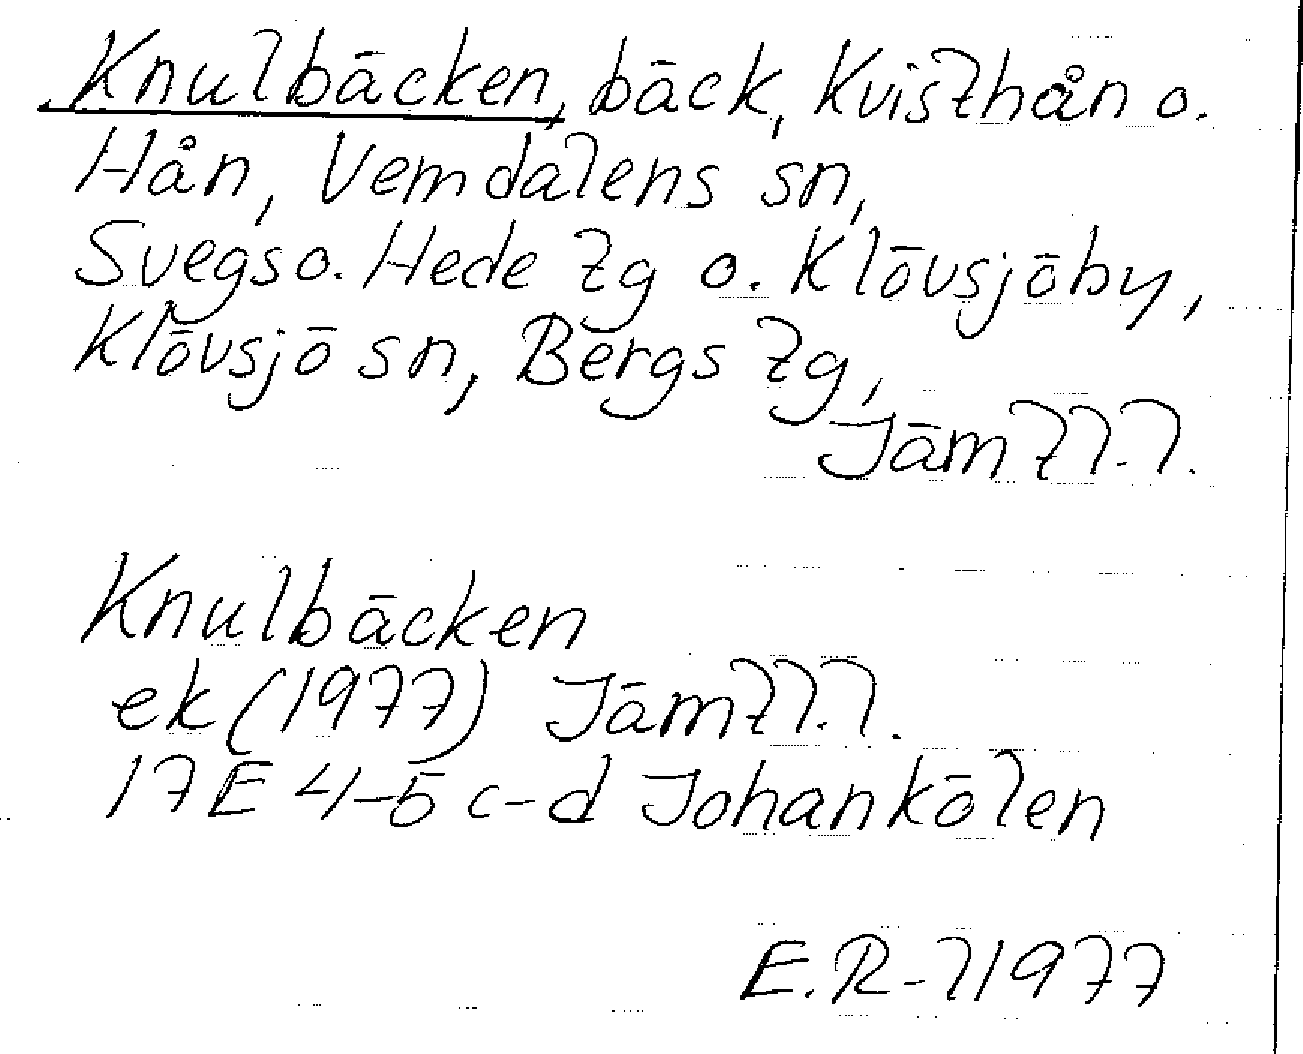 Knulbäcken, bäck, Kvisthån o.
Hån, Vemdalens sn,
Svegs o. Hede tg o. Klövsjöby,
Klövsjö sn, Bergs tg,
Jämtl.l.
Knulbäcken
ek (1977) Jämtl.l.
17E 4-5 c-d Johankölen
E.R-l 1977